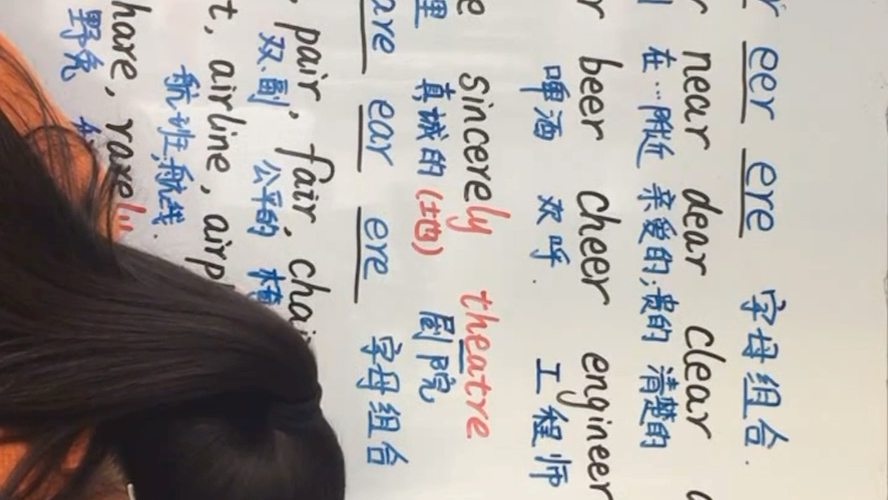 eer ere 字母组合.
near dear clear
在…附近 亲爱的;贵的 清楚的
beer cheer engineer
啤酒 欢呼. 工程师
sincerely theatre
真诚的(地) 剧院
are ear ere 字母组合
pair, fair,
双.副 公平的
airline,
航班,航线.
hare,
野兔